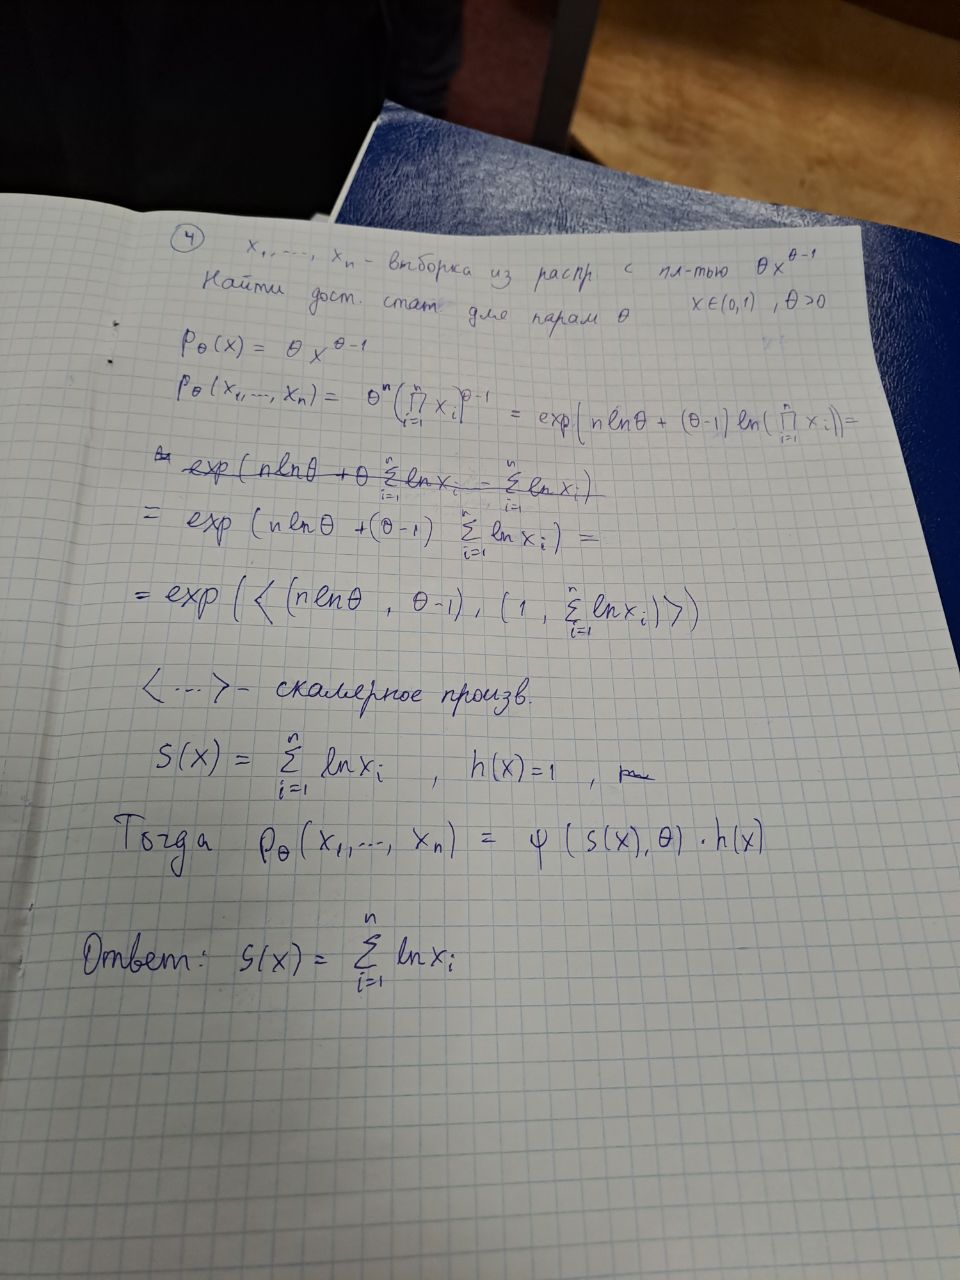 ④ x₁,..., xₙ - выборка из распр с пл-тью θx^{θ-1}
Найти дост. стат для парам θ x∈(0,1) , θ>0
P_θ(x) = θ x^{θ-1}
P_θ(x₁,..., xₙ) = θⁿ(∏_{i=1}^{n} x_i)^{θ-1} = exp(n lnθ + (θ-1) ln(∏_{i=1}^{n} x_i)) =
exp(n lnθ + θ ∑_{i=1}^{n} ln x_i - ∑_{i=1}^{n} ln x_i)
= exp (n lnθ + (θ-1) ∑_{i=1}^{n} ln x_i) =
= exp (<(n lnθ , θ-1), (1 , ∑_{i=1}^{n} ln x_i)>)
<...> - скалярное произв.
S(x) = ∑_{i=1}^{n} ln x_i , h(x)=1 ,
Тогда P_θ(x₁,..., xₙ) = ψ (S(x), θ) · h(x)
Ответ: S(x) = ∑_{i=1}^{n} ln x_i